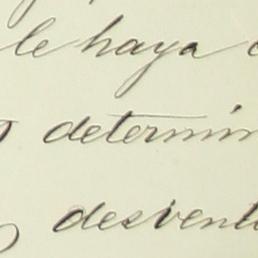 le haya
determin
desvent